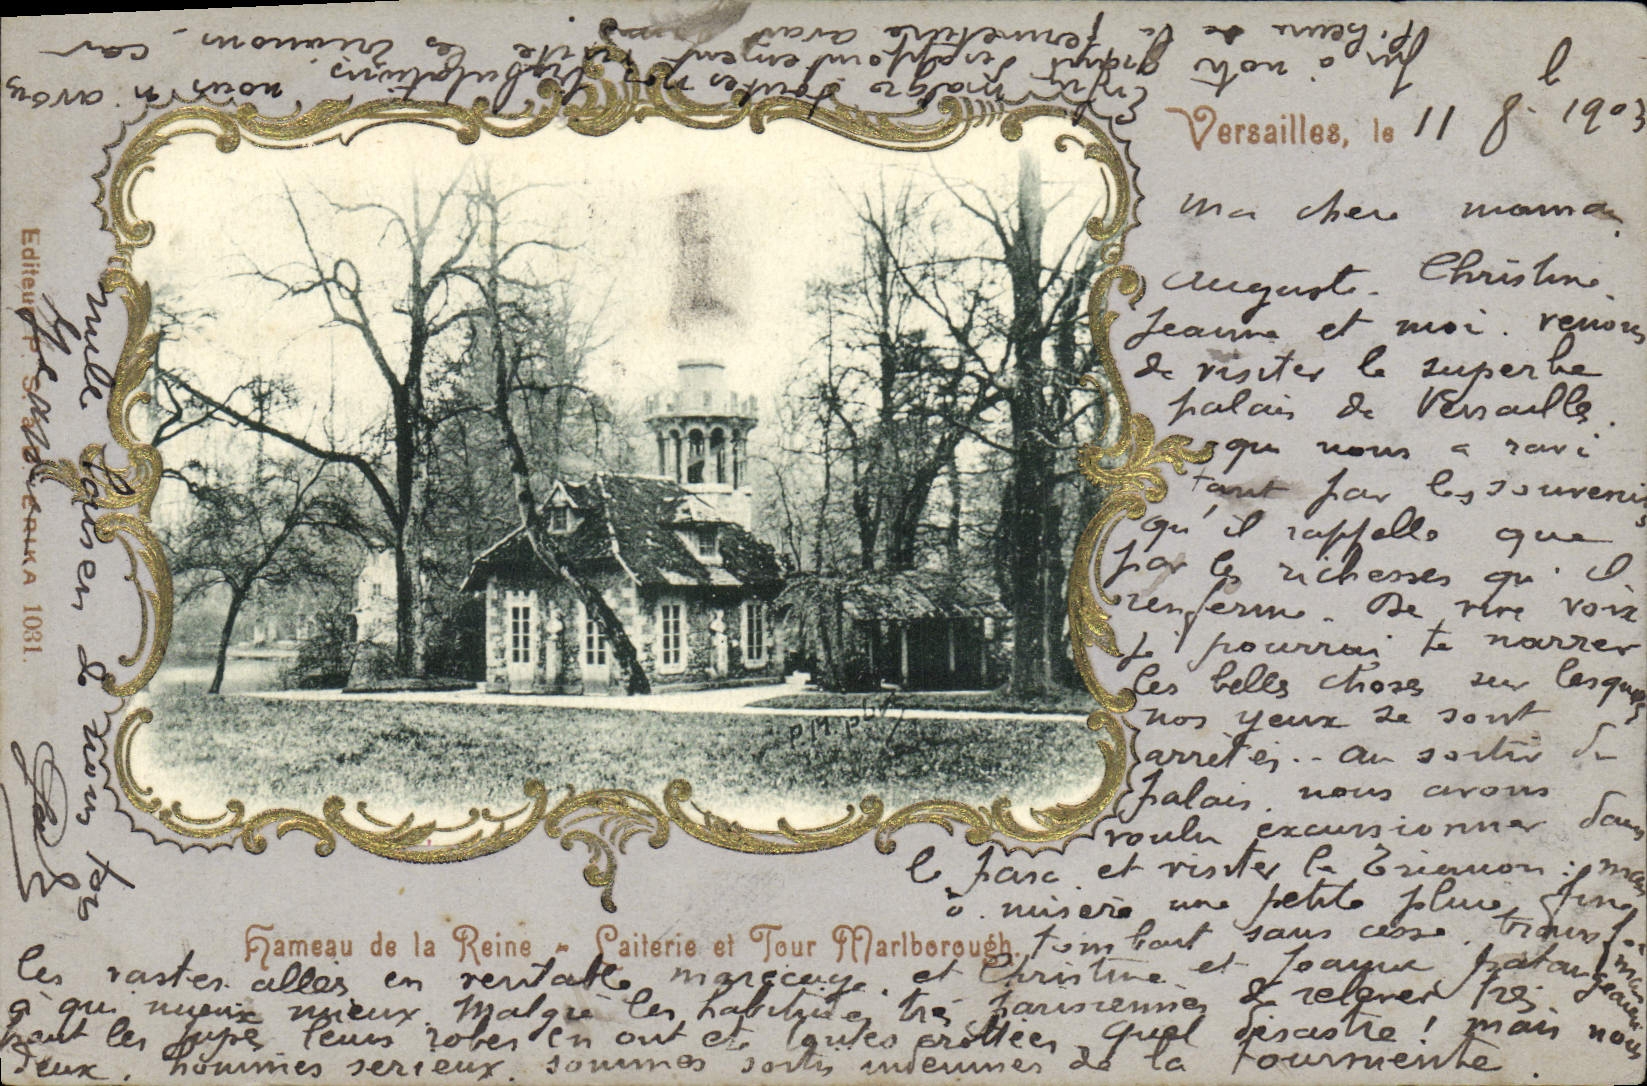 Versailles, le 11 8. 1903
Ma chere maman,
Auguste. Christine.
Jeanne et moi. venons
de visiter le superbe
palais de Versailles.
qui nous a ravi
tant par les souvenirs
qu'il rappelle que
par les richesses qu'il
renferme. De vive voix
je pourrai te narrer
les belles choses sur lesquelles
nos yeux se sont
arrêtés.. au sortir du
palais. nous avons
voulu excursionner dans
le parc et visiter le Trianon: mais
ô. misère une petite pluie fine
tombant sans cesse. transformait
les vastes allées en veritable marécage. et Christine et Jeanne pataugeaient
à qui mieux mieux. Malgré les habitudes très parisiennes de relever très
haut les jupes leurs robes en ont été toutes crottées. quel disastre! mais nous
deux. hommes serieux. sommes sortis indemnes de la tourmente.
Enfin malgré toutes nos tribulations. nous n'avons
grand desappointement visite les trianons. car
la fermeture avait
l'heure de
mille baisers de nous tous
Hameau de la Reine - Laiterie et Tour Marlborough.
Editeur P. S. à D. ERIKA 1031.